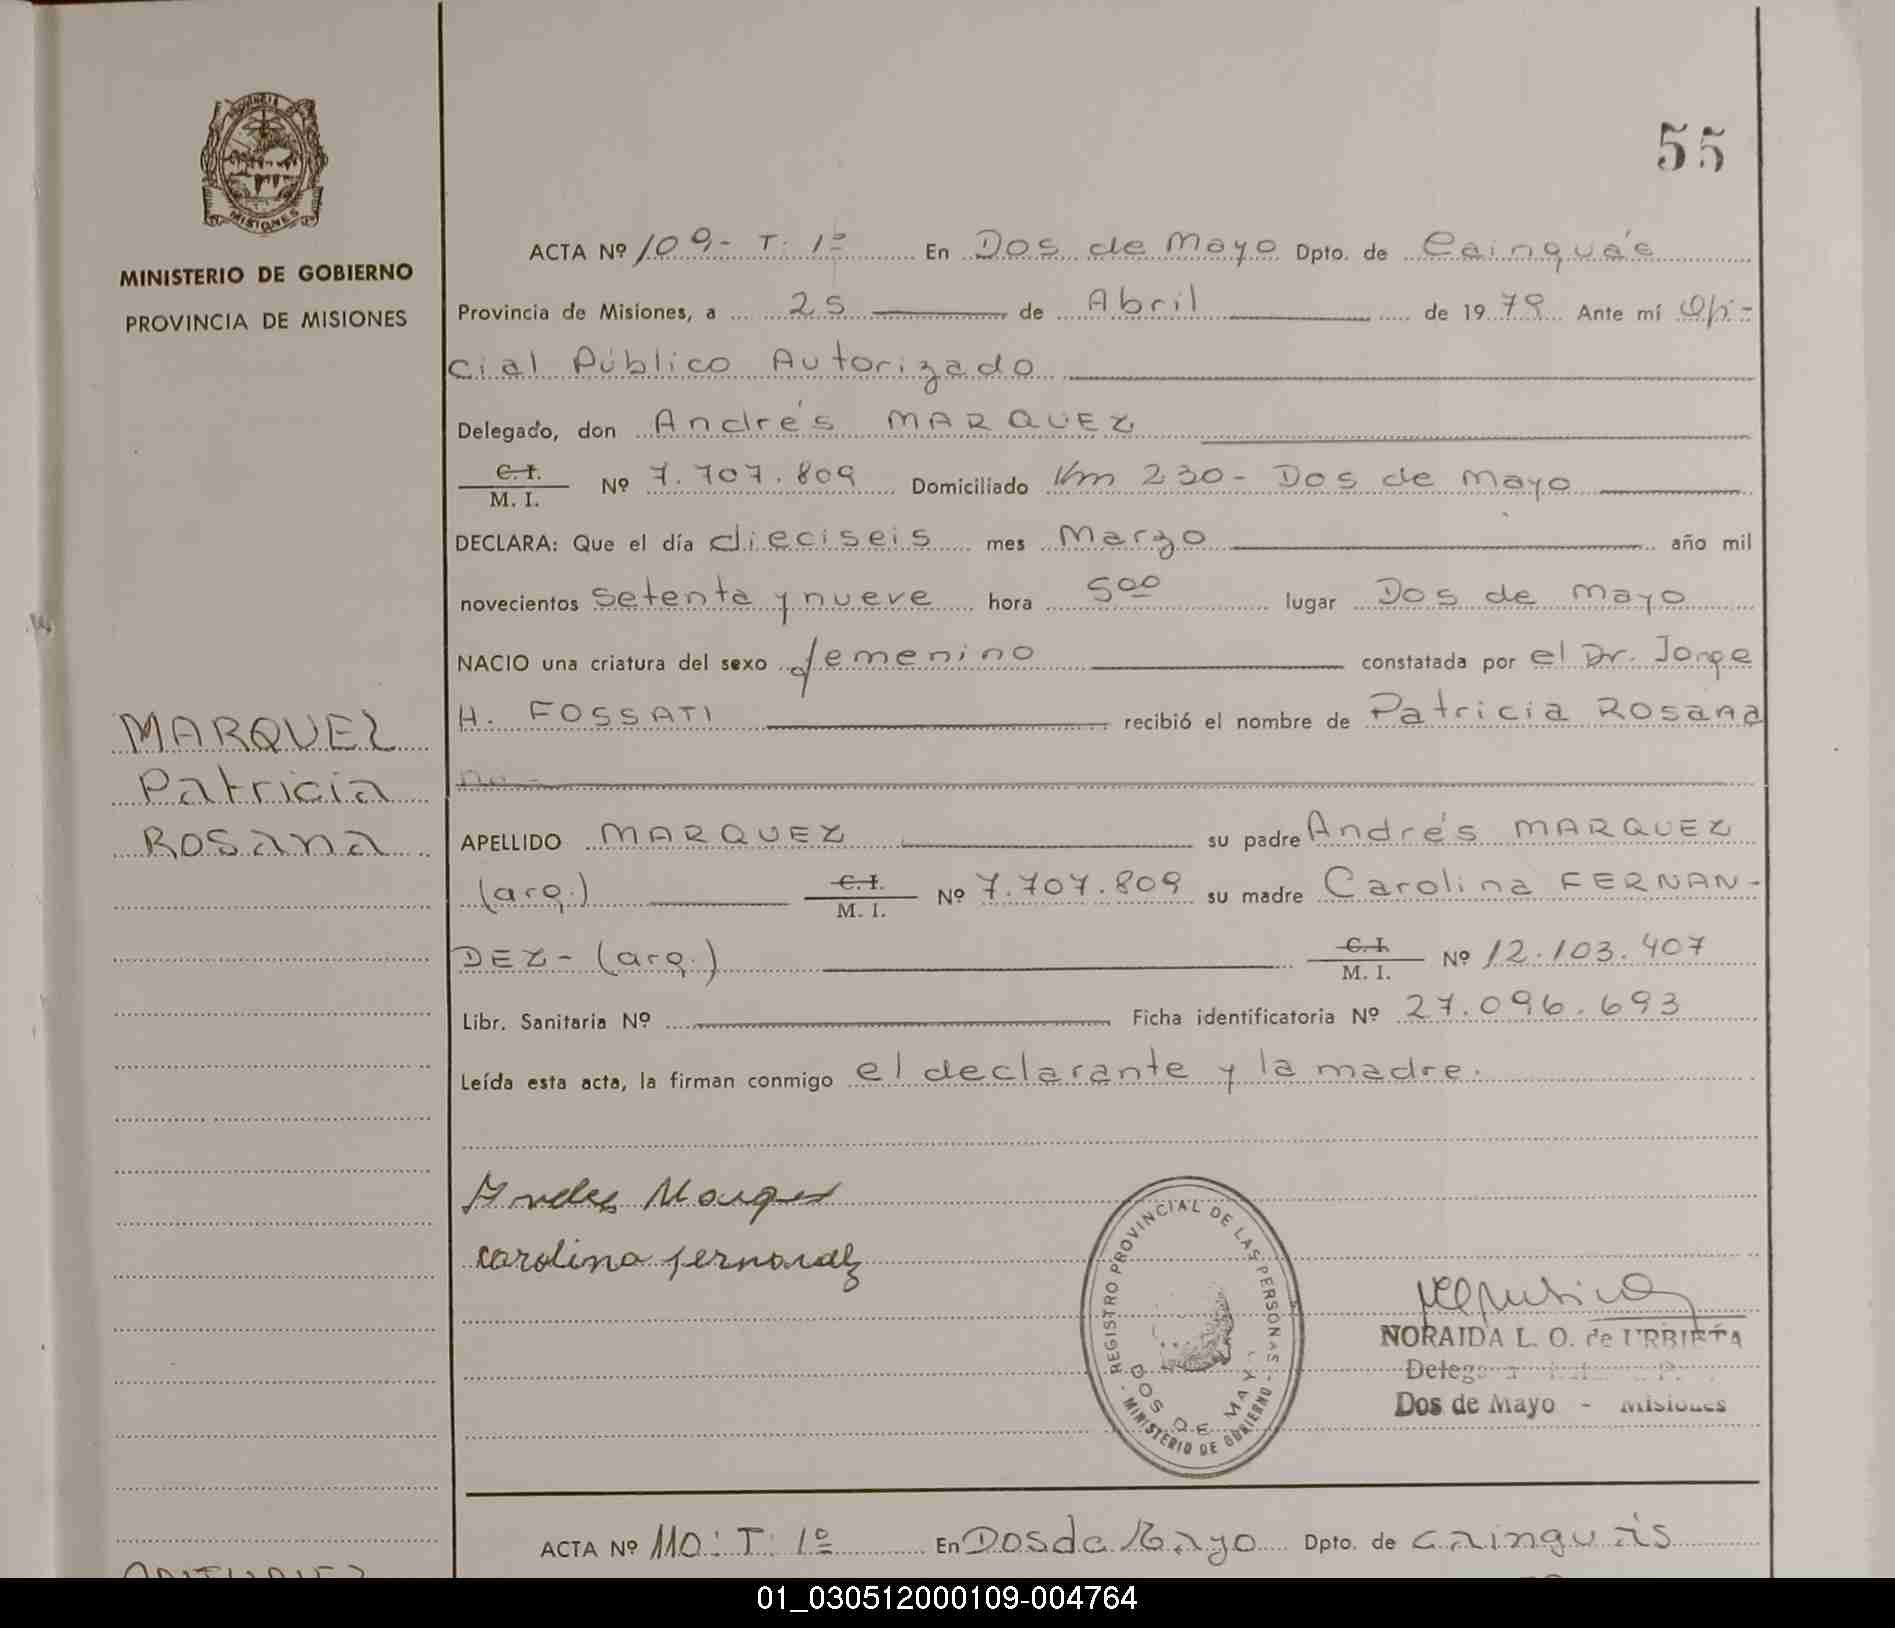 55
PROVINCIA DE
MISIONES
MINISTERIO DE GOBIERNO
PROVINCIA DE MISIONES
ACTA Nº 109- T. 1º En Dos de Mayo Dpto. de Cainguás
Provincia de Misiones, a 25 de Abril de 1979 Ante mí Ofi-
cial Público Autorizado
Delegado, don Andrés MARQUEZ
C. I. / M. I. Nº 7.707.809 Domiciliado Km 230- Dos de Mayo
DECLARA: Que el día dieciseis mes Marzo año mil
novecientos setenta y nueve hora 5⁰⁰ lugar Dos de Mayo
NACIO una criatura del sexo femenino constatada por el Dr. Jorge
H. FOSSATI recibió el nombre de Patricia Rosana
na-
MARQUEZ
Patricia
Rosana
APELLIDO MARQUEZ su padre Andrés MARQUEZ
(arg.) C. I. / M. I. Nº 7.707.809 su madre Carolina FERNAN-
DEZ- (arg.) C. I. / M. I. Nº 12.103.407
Libr. Sanitaria Nº Ficha identificatoria Nº 27.096.693
Leída esta acta, la firman conmigo el declarante y la madre.
Andres Marques
carolina fernandz
REGISTRO PROVINCIAL DE LAS PERSONAS
DOS DE MAY
- MINISTERIO DE GOBIERNO -
NORAIDA L. O. de URBIETA
Dos de Mayo - Misiones
ACTA Nº 110: T: 1º En Dos de Mayo Dpto. de Cainguás
01_030512000109-004764